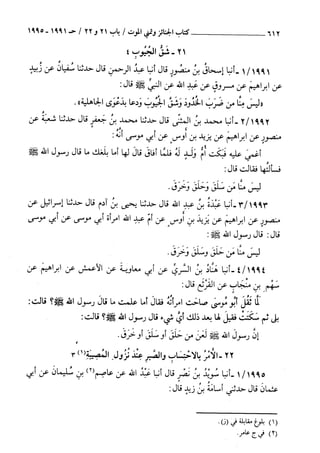 ٦١٢ كتاب الجنائز وتمني الموت / باب ٢١ و ٢٢ / حـ ١٩٩١ - ١٩٩٥
٢١ - شَقُّ الجُيُوبِ ٤
١/١٩٩١ - أنبا إسحاقُ بنُ منصورٍ قال أنبا عبدُ الرحمنِ قال حدثنا سُفيانُ عن زُبيدٍ
عن ابراهيمَ عن مسروقٍ عن عبدِ الله عن النبيِّ ﷺ قال:
«ليسَ مِنَّا من ضَرَبَ الخُدودَ وشَقَّ الجُيوبَ ودعا بدَعْوَى الجاهلية».
٢/١٩٩٢ - أنبا محمد بنُ المثنَّى قال حدثنا محمد بنُ جعفرٍ قال حدثنا شعبةُ عن
منصورٍ عن ابراهيمَ عن يزيد بنِ أوسٍ عن أبي موسى أنَّهُ:
أُغميَ عليه فبَكتْ أمُّ ولدٍ لهُ فلمَّا أفاقَ قال لها أما بلغك ما قال رسول الله ﷺ
فسألنَاها فقالت قال:
ليسَ مِنَّا مَن سَلَقَ وحَلَقَ وخَرَقَ.
٣/١٩٩٣ - أنبا عَبْدَةُ بنُ عبدِ الله قال حدثنا يحيى بنُ آدم قال حدثنا إسرائيل عن
منصورٍ عن ابراهيمَ عن يَزيدَ بنِ أوسٍ عن أمِّ عبدِ الله امرأة أبي موسى عن أبي موسى
قال: قال رسول الله ﷺ:
ليس مِنَّا من حَلَقَ وسلَقَ وخَرَقَ.
٤/١٩٩٤ - أنبا هنَّادُ بنُ السَّريِّ عن أبي معاويةَ عن الأعمشِ عن ابراهيمَ عن
سَهْمِ بنِ مِنْجَابٍ عن القَرْثَعِ قال:
لمَّا ثَقُلَ أبو مُوسَى صاحتِ امرأتُهُ فقال أما علمتِ ما قالَ رسول الله ﷺ؟ قالت:
بلى ثم سَكَتَتْ فقيلَ لها بعد ذلك أيُّ شيءٍ قال رسول الله ﷺ؟ قالت:
إن رسول الله ﷺ لَعَنَ من حَلَقَ أو سَلَقَ أو خَرَقَ.
٢٢ - الأمرُ بالاحْتِسابِ والصَّبرِ عِنْدَ نُزُولِ المُصيبَةِ(١) ٣
١/١٩٩٥ - أنبا سُوَيدُ بنُ نَصْرٍ قال أنبا عبدُ الله عن عاصمٍ(٢) بنِ سُليمانَ عن أبي
عثمانَ قال حدثني أُسامةُ بنُ زيدٍ قال:
(١) بلوغ مقابلة في (ز).
(٢) في ج عامر.